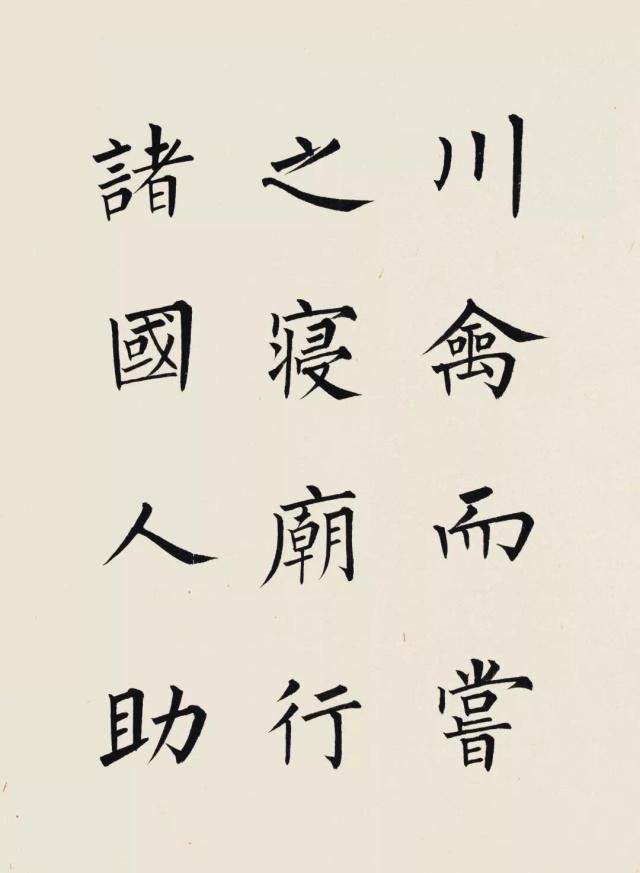 川禽而嘗
之寢廟行
諸國人助